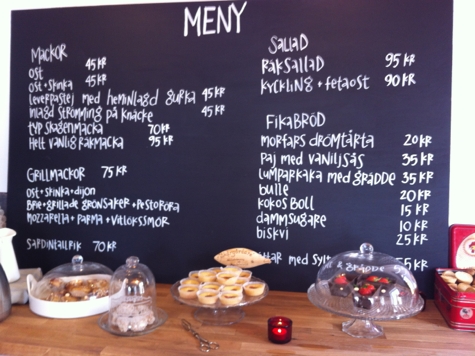 MENY
MACKOR
OST 45 KR
OST+SKINKA 45 KR
LEVERPASTEJ MED HEMINLAGD GURKA 45 KR
INLAGD STRÖMMING PÅ KNÄCKE 45 KR
TYP SKAGENMACKA 70 KR
HELT VANLIG RÄKMACKA 95 KR
GRILLMACKOR 75 KR
OST+SKINKA+DIJON
BRIE+GRILLADE GRÖNSAKER+PESTORÖRA
MOZZARELLA+PARMA+VITLÖKSSMÖR
SARDINTALLRIK 70 KR
SALLAD
RÄKSALLAD 95 KR
KYCKLING+FETAOST 90 KR
FIKABRÖD
MORFARS DRÖMTÅRTA 20 KR
PAJ MED VANILJSÅS 35 KR
LUMPARKAKA MED GRÄDDE 35 KR
BULLE 20 KR
KOKOS BOLL 15 KR
DAMMSUGARE 10 KR
BISKVI 25 KR
MED SYLT
& GRÄDDE 55 KR